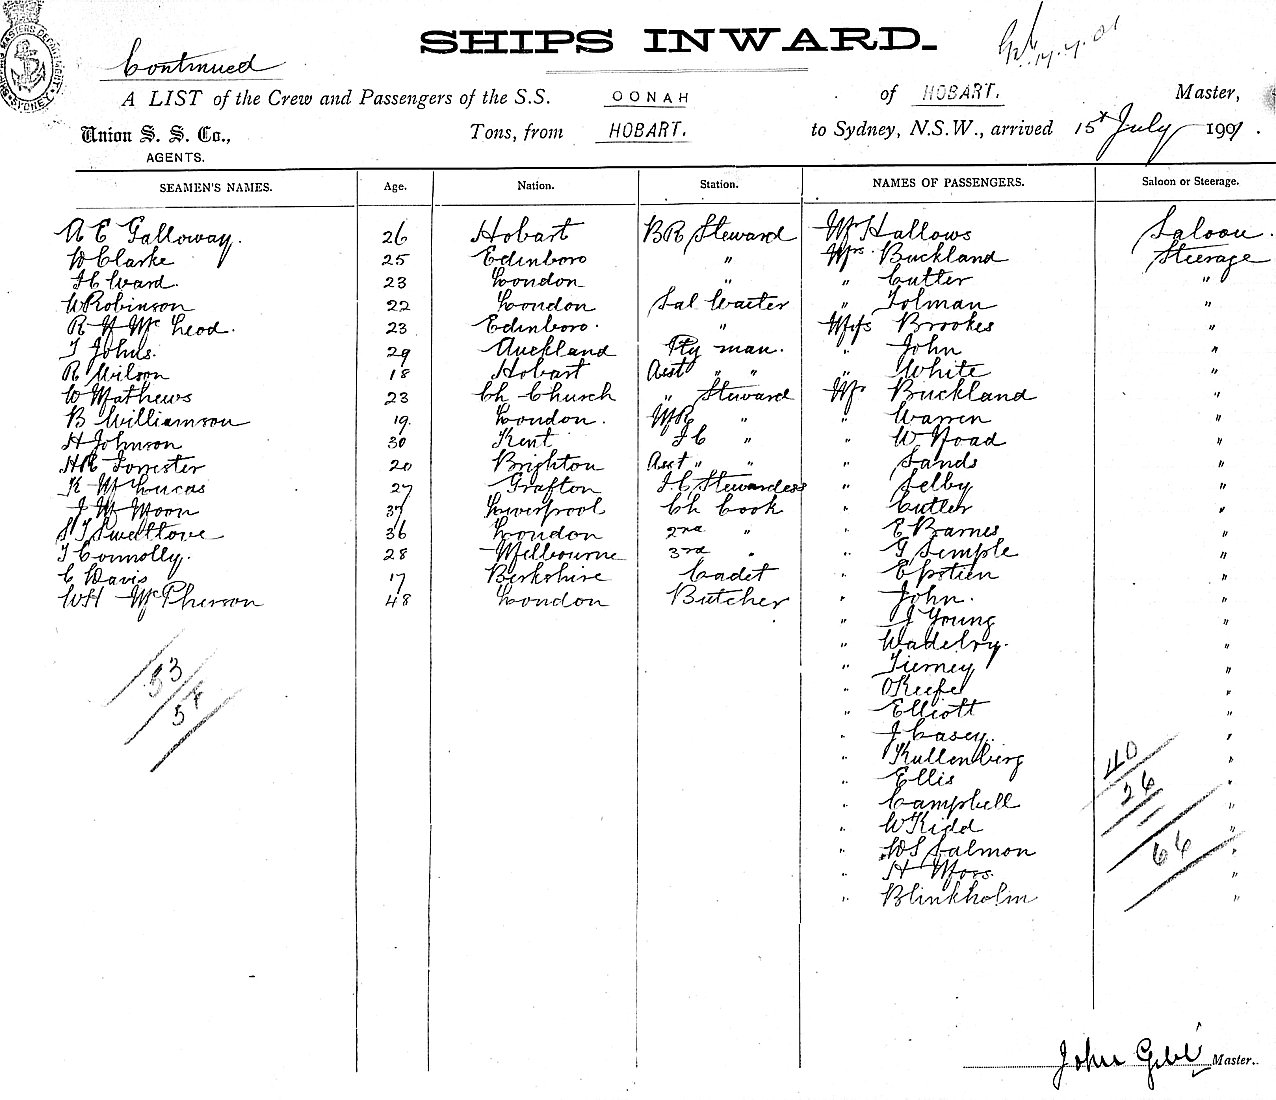 SHIPS INWARD.
Continued
A LIST of the Crew and Passengers of the S.S. OONAH of HOBART. Master,
Union S. S. Co., Tons, from HOBART. to Sydney, N.S.W., arrived 15th July 1901.
AGENTS.
SEAMEN'S NAMES. Age. Nation. Station. NAMES OF PASSENGERS. Saloon or Steerage.
A E Galloway. 26 Hobart BR Steward Mr Hallows Saloon.
W Clarke 25 Edinboro " Mrs Buckland Steerage
J C Ward. 23 London " " Cutter "
W Robinson 22 London Sal Waiter " Tolman "
R H McLeod. 23 Edinboro. " Miss Brookes "
T Johns. 29 Auckland Pty man. " John "
R Wilson 18 Hobart Asst " " " White "
W Mathews 23 Ch Church " Steward Mr Buckland "
B Williamson 19 London. MR " " Warren "
H Johnson 30 Kent F C " " W Noad "
HR Forrester 20 Brighton Asst " " " Sands "
K McLucas 27 Grafton F.C Stewardess " Selby "
J W Moon 37 Liverpool Ch Cook " Cutler "
S J Sweltove 36 London 2nd " " E Barnes "
T Connolly. 28 Melbourne 3rd " " G Semple "
C Davis 17 Berkshire Cadet " Epstien "
WH McPherson 48 London Butcher " John. "
" J Young "
" Wadelry. "
" Tierney "
" OKeefe "
" Elliott "
" J Casey. "
" Kullenberg "
" Ellis "
" Campbell "
" W Kidd "
" WS Salmon "
" H Moss "
" Blinkholm "
53
54
40
26
66
John Gibb Master.